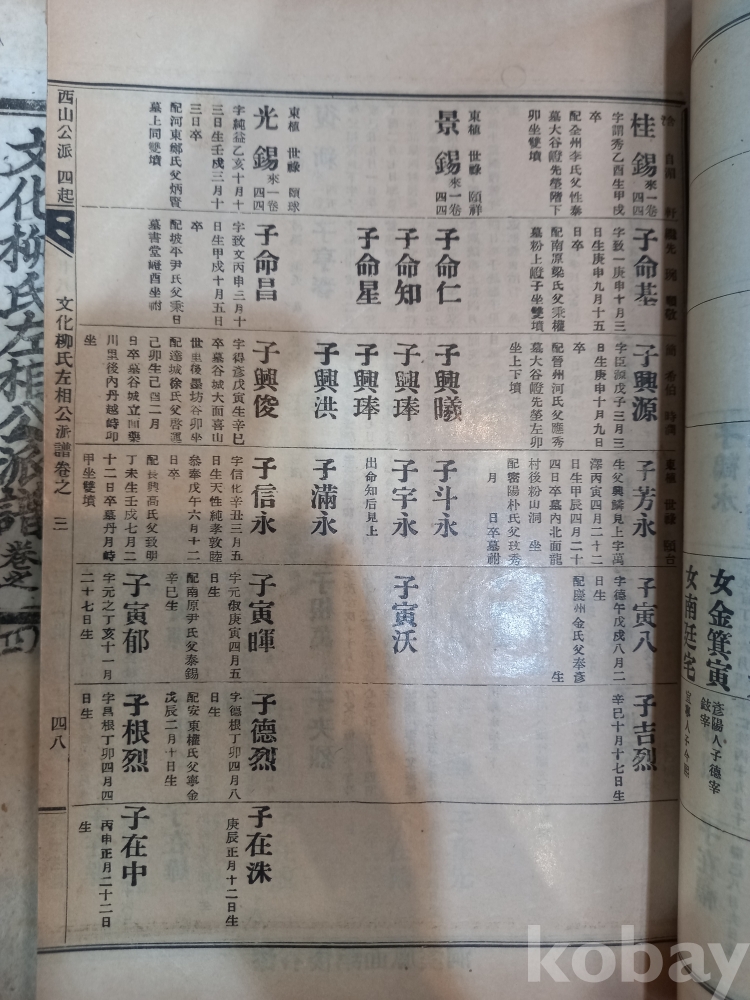 女金箕寅
女南廷宅
桂錫
來一卷
四四
字謂秀乙酉生甲戌
卒
配全州李氏父性泰
墓大谷嶝先塋階下
卯坐雙墳
東植 世祿 頤祥
景錫
來一卷
四四
東植 世祿 頤球
光錫
來一卷
四四
字純益乙亥十月十
三日生壬戌三月十
三日卒
配河東鄭氏父炳賢
墓上同雙墳
子命基
字致一庚申十月三
日生庚申九月十五
日卒
配南原梁氏父秉權
墓粉上嶝子坐雙墳
子命仁
子命知
子命星
子命昌
字致文丙申三月十
日生甲戌十月五日
卒
配坡平尹氏父秉日
墓書堂嶝酉坐祔
子興源
字臣源戊子三月三
日生庚申十月九日
卒
配晉州河氏父應秀
墓大谷嶝先塋左卯
坐上下墳
子興曦
子興琫
子興琫
子興洪
子興俊
字得彥戊寅生辛巳
卒墓谷城大面喜山
世里後墨坊谷卯坐
配達城徐氏父啓運
己卯生己酉二月
日卒墓谷城立面藥
川里後內丹越峙卯
坐
子芳永
生父興麟見上字萬
澤丙寅四月二十二
日生甲辰四月二十
四日卒墓內北面龍
村後粉山洞 坐
配密陽朴氏父玟秀
月 日卒墓祔
子斗永
子宇永
出命知后見上
子滿永
子信永
字信化辛丑三月五
日生天性純孝敦睦
參奉戊午六月十二
日卒
配長興高氏父致明
丁未生壬戌七月二
十二日卒墓丹月峙
甲坐雙墳
子寅八
字德午戊戌八月二
日生
配慶州金氏父奉彥
生
子寅沃
子寅暉
字元俶庚寅四月五
日生
配南原尹氏父泰錫
辛巳生
子寅郁
字元之丁亥十一月
二十七日生
子吉烈
辛巳十月十七日生
子德烈
字德根丁卯四月八
日生
配安東權氏父寧金
戊辰二月十日生
子根烈
字昌根丁卯四月四
日生
子在洙
庚辰正月十二日生
子在中
丙申正月二十二日
生
西山公派 四起
文化柳氏左相公派譜卷之 三
四八
文化柳氏左相公派譜 卷之 四
kobay